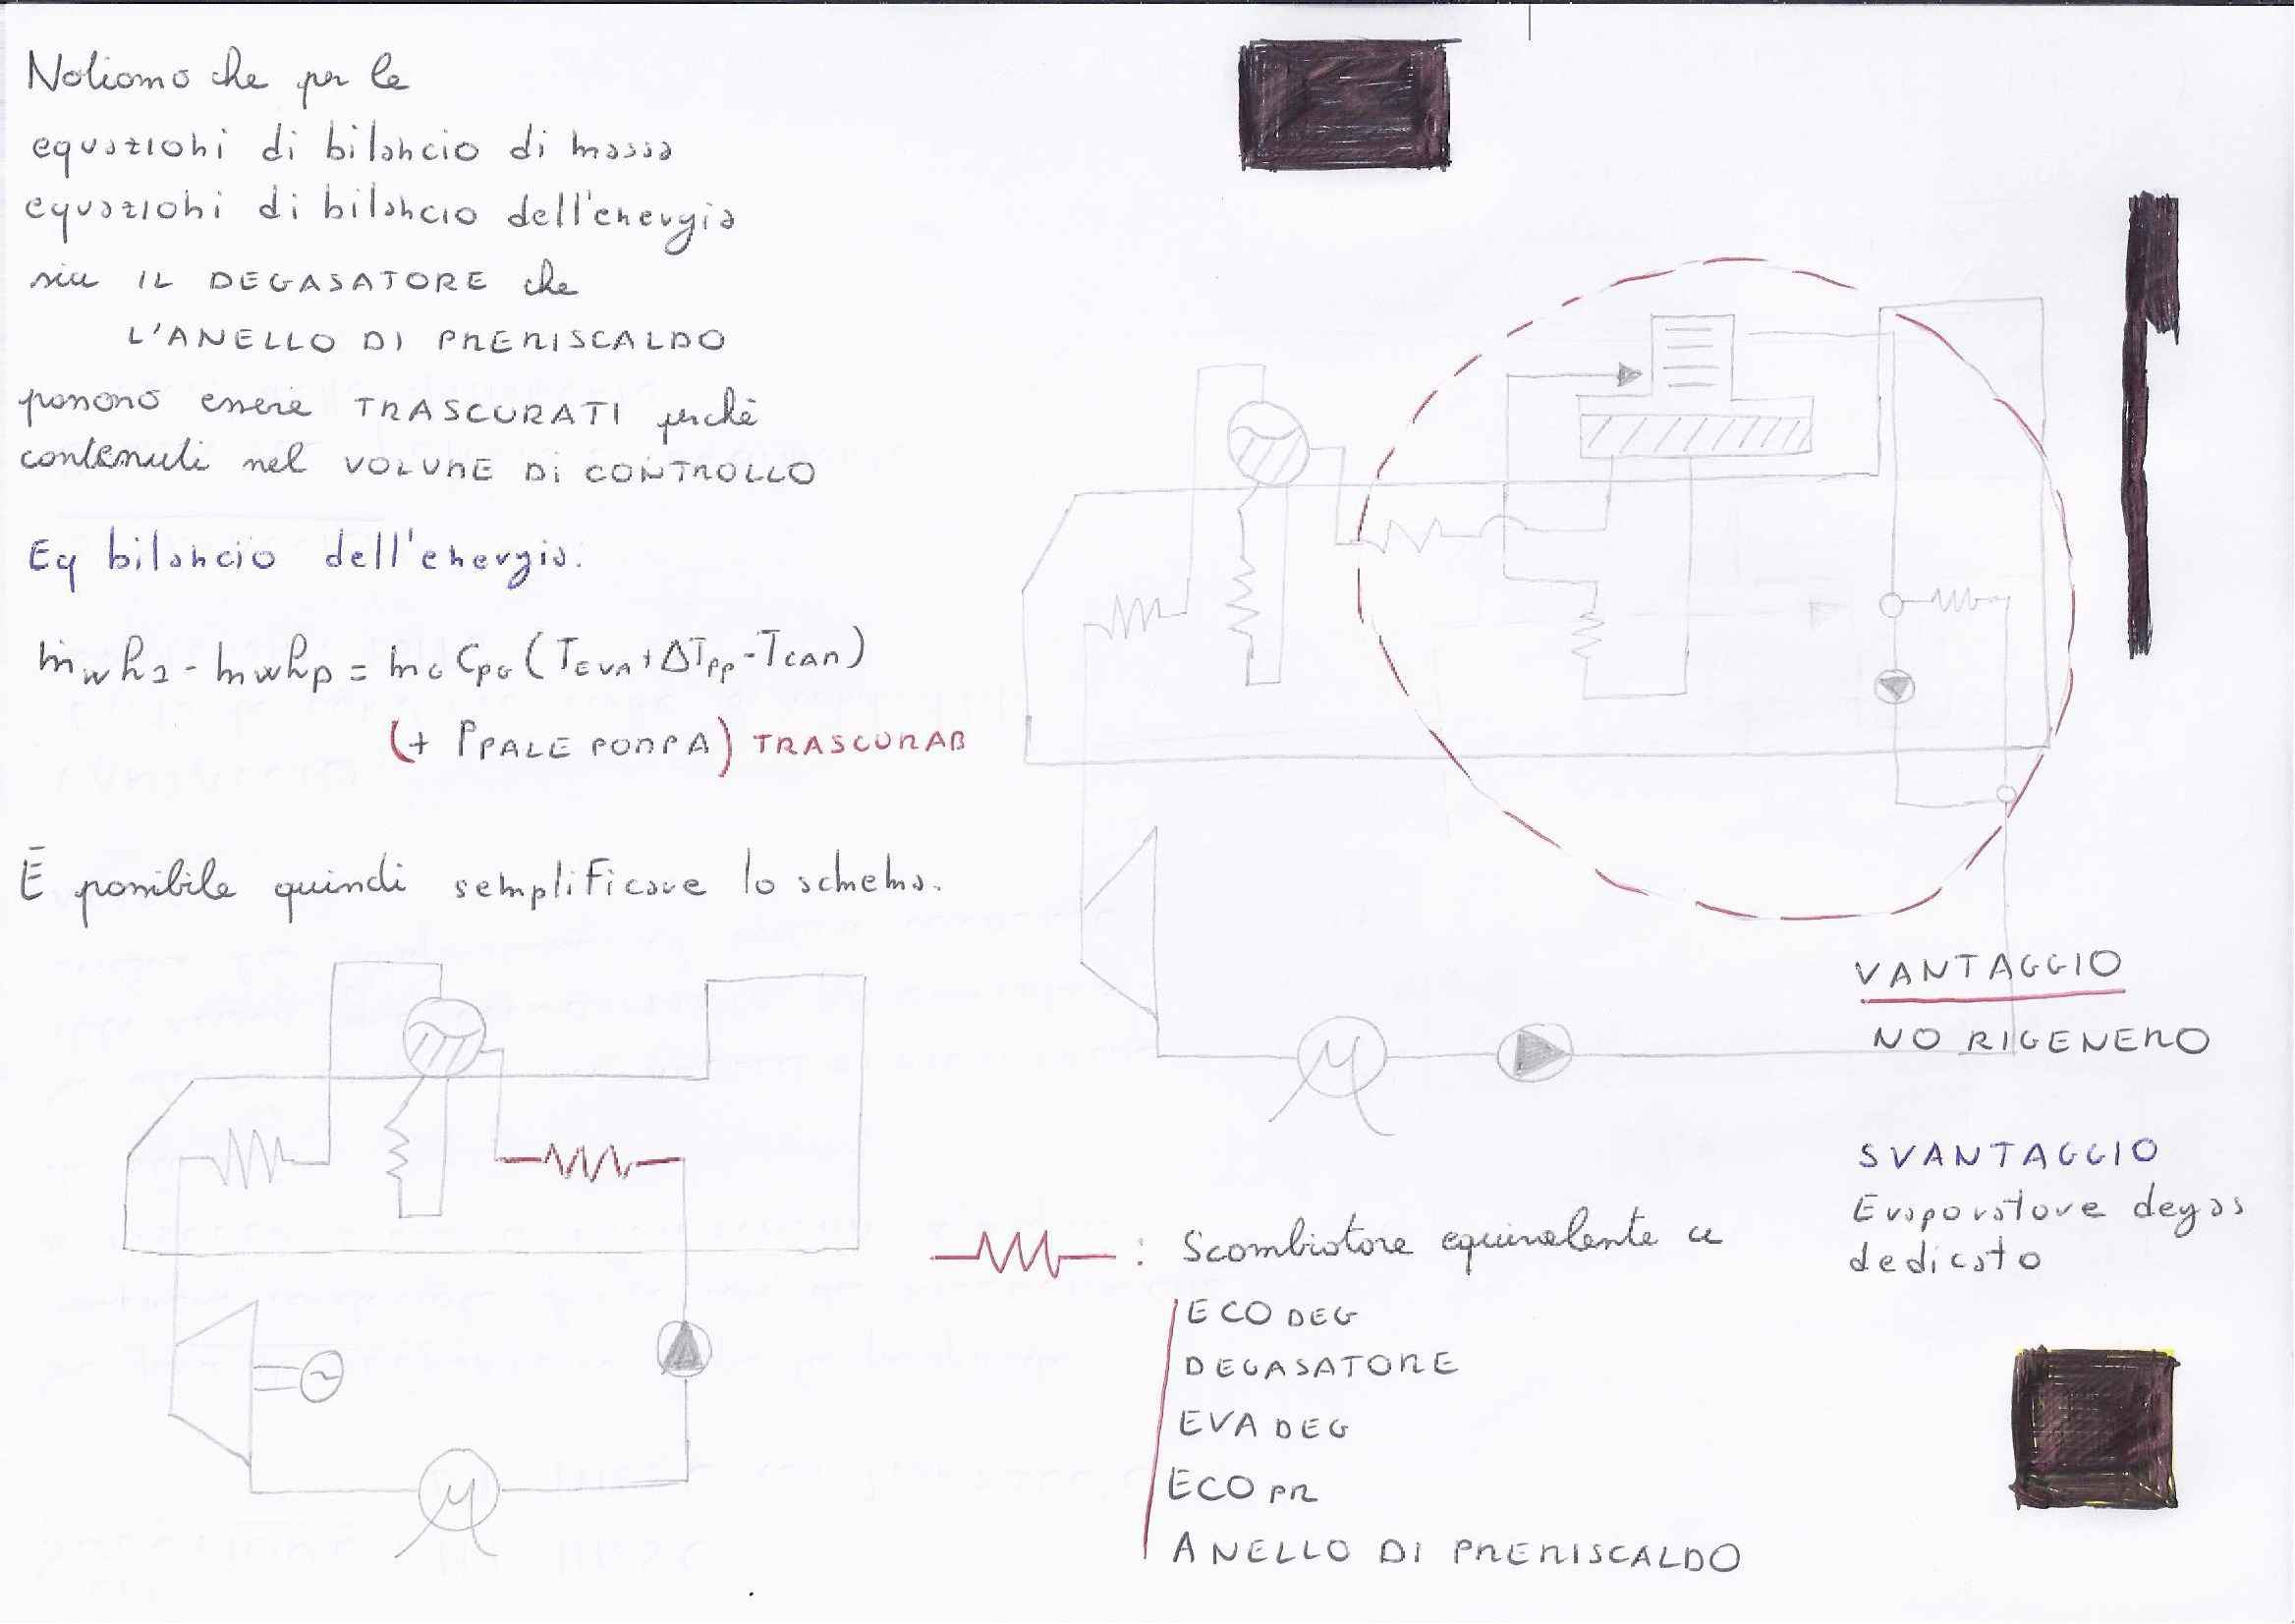 Notiamo che per le
equazioni di bilancio di massa
equazioni di bilancio dell'energia
sia IL DEGASATORE che
L'ANELLO DI PRERISCALDO
possono essere TRASCURATI perchè
contenuti nel VOLUME DI CONTROLLO
Eq bilancio dell'energia.
ṁw h2 - ṁw hp = ṁG CPG (TEVA + ΔTPP - TCAM)
(+ PPALE POMPA) TRASCURAB
È possibile quindi semplificare lo schema.
VANTAGGIO
NO RIGENERO
SVANTAGGIO
Evaporatore degas
dedicato
: Scambiatore equivalente a
ECO DEG
DEGASATORE
EVA DEG
ECO PR
ANELLO DI PRERISCALDO